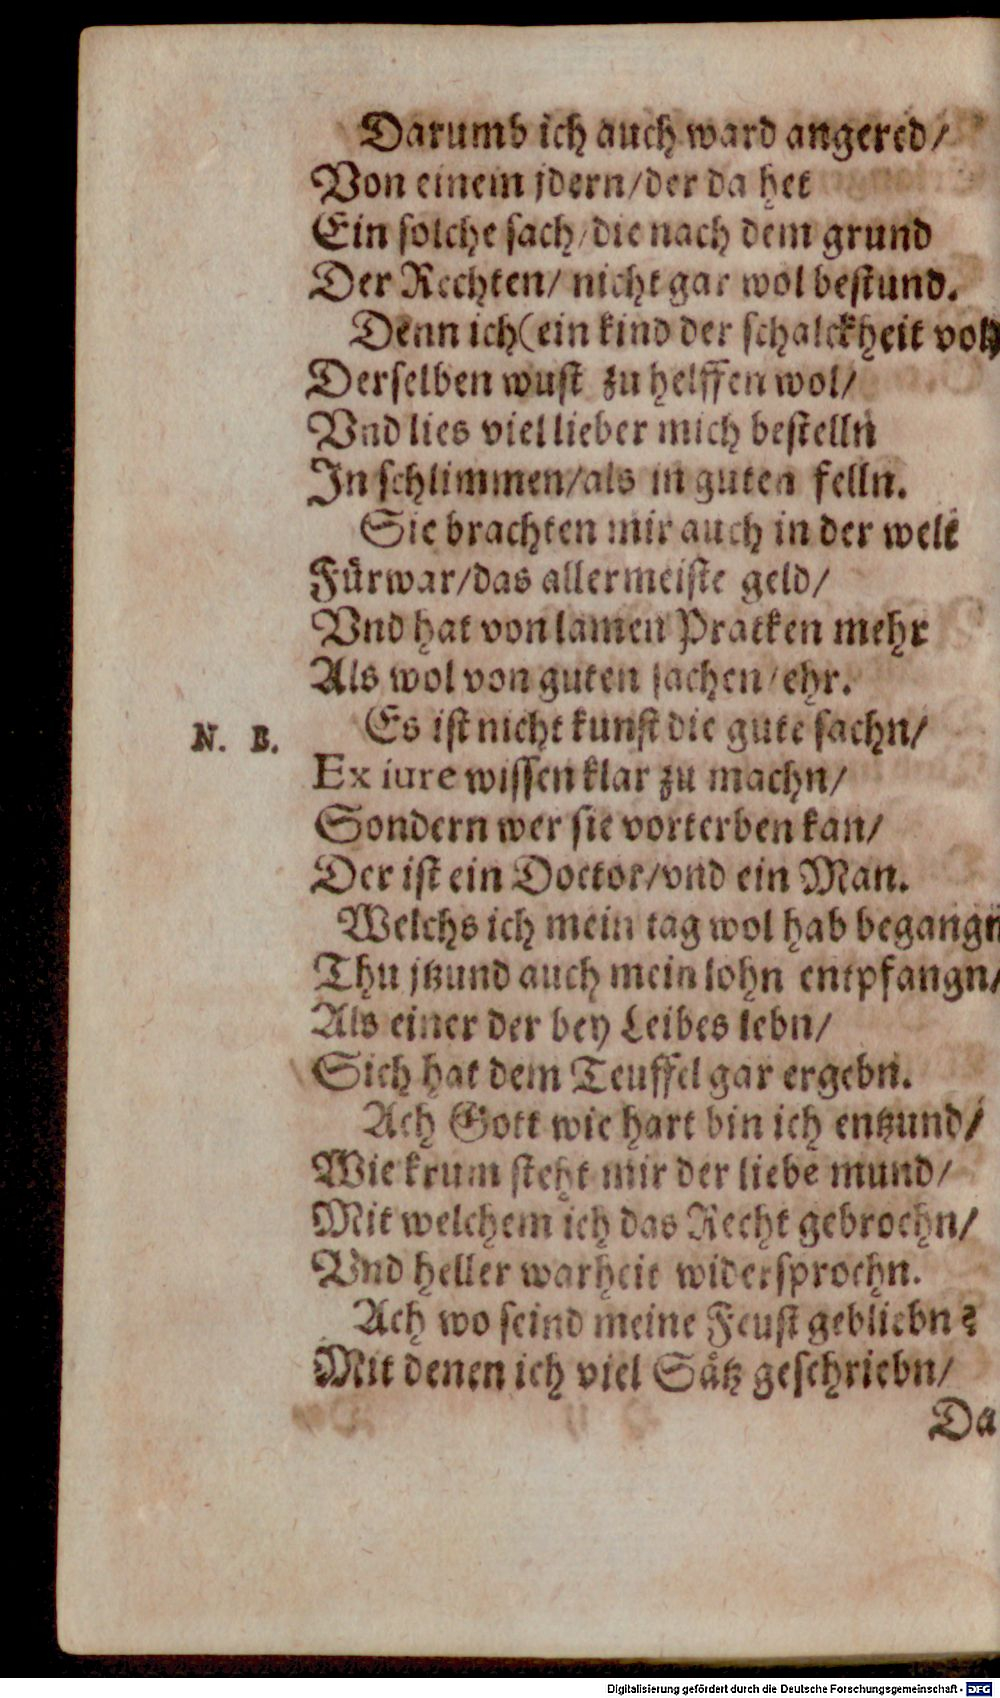 Darumb ich auch ward angered/
Von einem jdern/der da het
Ein solche sach/die nach dem grund
Der Rechten/ nicht gar wol bestund.
Denn ich (ein kind der schalckheit vol)
Derselben wust zu helffen wol/
Vnd lies viel lieber mich bestelln
In schlimmen/als in guten felln.
Sie brachten mir auch in der welt
Fürwar/das allermeiste geld/
Vnd hat von lamen Pratken mehr
Als wol von guten sachen/ehr.
N. B. Es ist nicht kunst die gute sachn/
Ex iure wissen klar zu machn/
Sondern wer sie vorterben kan/
Der ist ein Doctor/vnd ein Man.
Welchs ich mein tag wol hab begangn
Thu jtzund auch mein lohn entpfangn/
Als einer der bey Leibes lebn/
Sich hat dem Teuffel gar ergebn.
Ach Gott wie hart bin ich entzund/
Wie krum steht mir der liebe mund/
Mit welchem ich das Recht gebrochn/
Vnd heller warheit widersprochn.
Ach wo seind meine Feust gebliebn?
Mit denen ich viel Sätz geschriebn/
Da
Digitalisierung gefördert durch die Deutsche Forschungsgemeinschaft - DFG